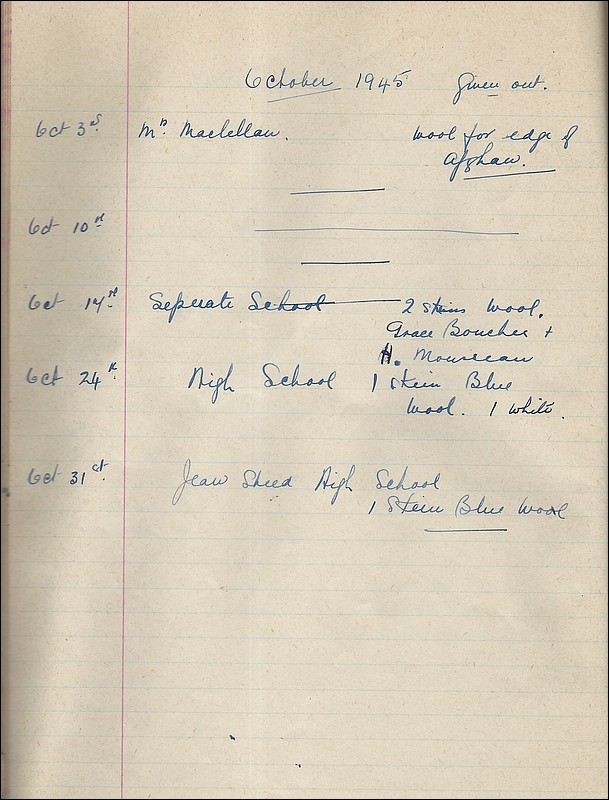 October 1945 Given out.
Oct 3rd Mrs Maclellan. Wool for edge of
Afghan.
Oct 10th
Oct 17th Seperate School 2 Skins Wool.
Grace Boucher +
H. Mousseau
Oct 24th High School 1 Skein Blue
Wool. 1 White.
Oct 31st Jean Steed High School
1 Skein Blue Wool